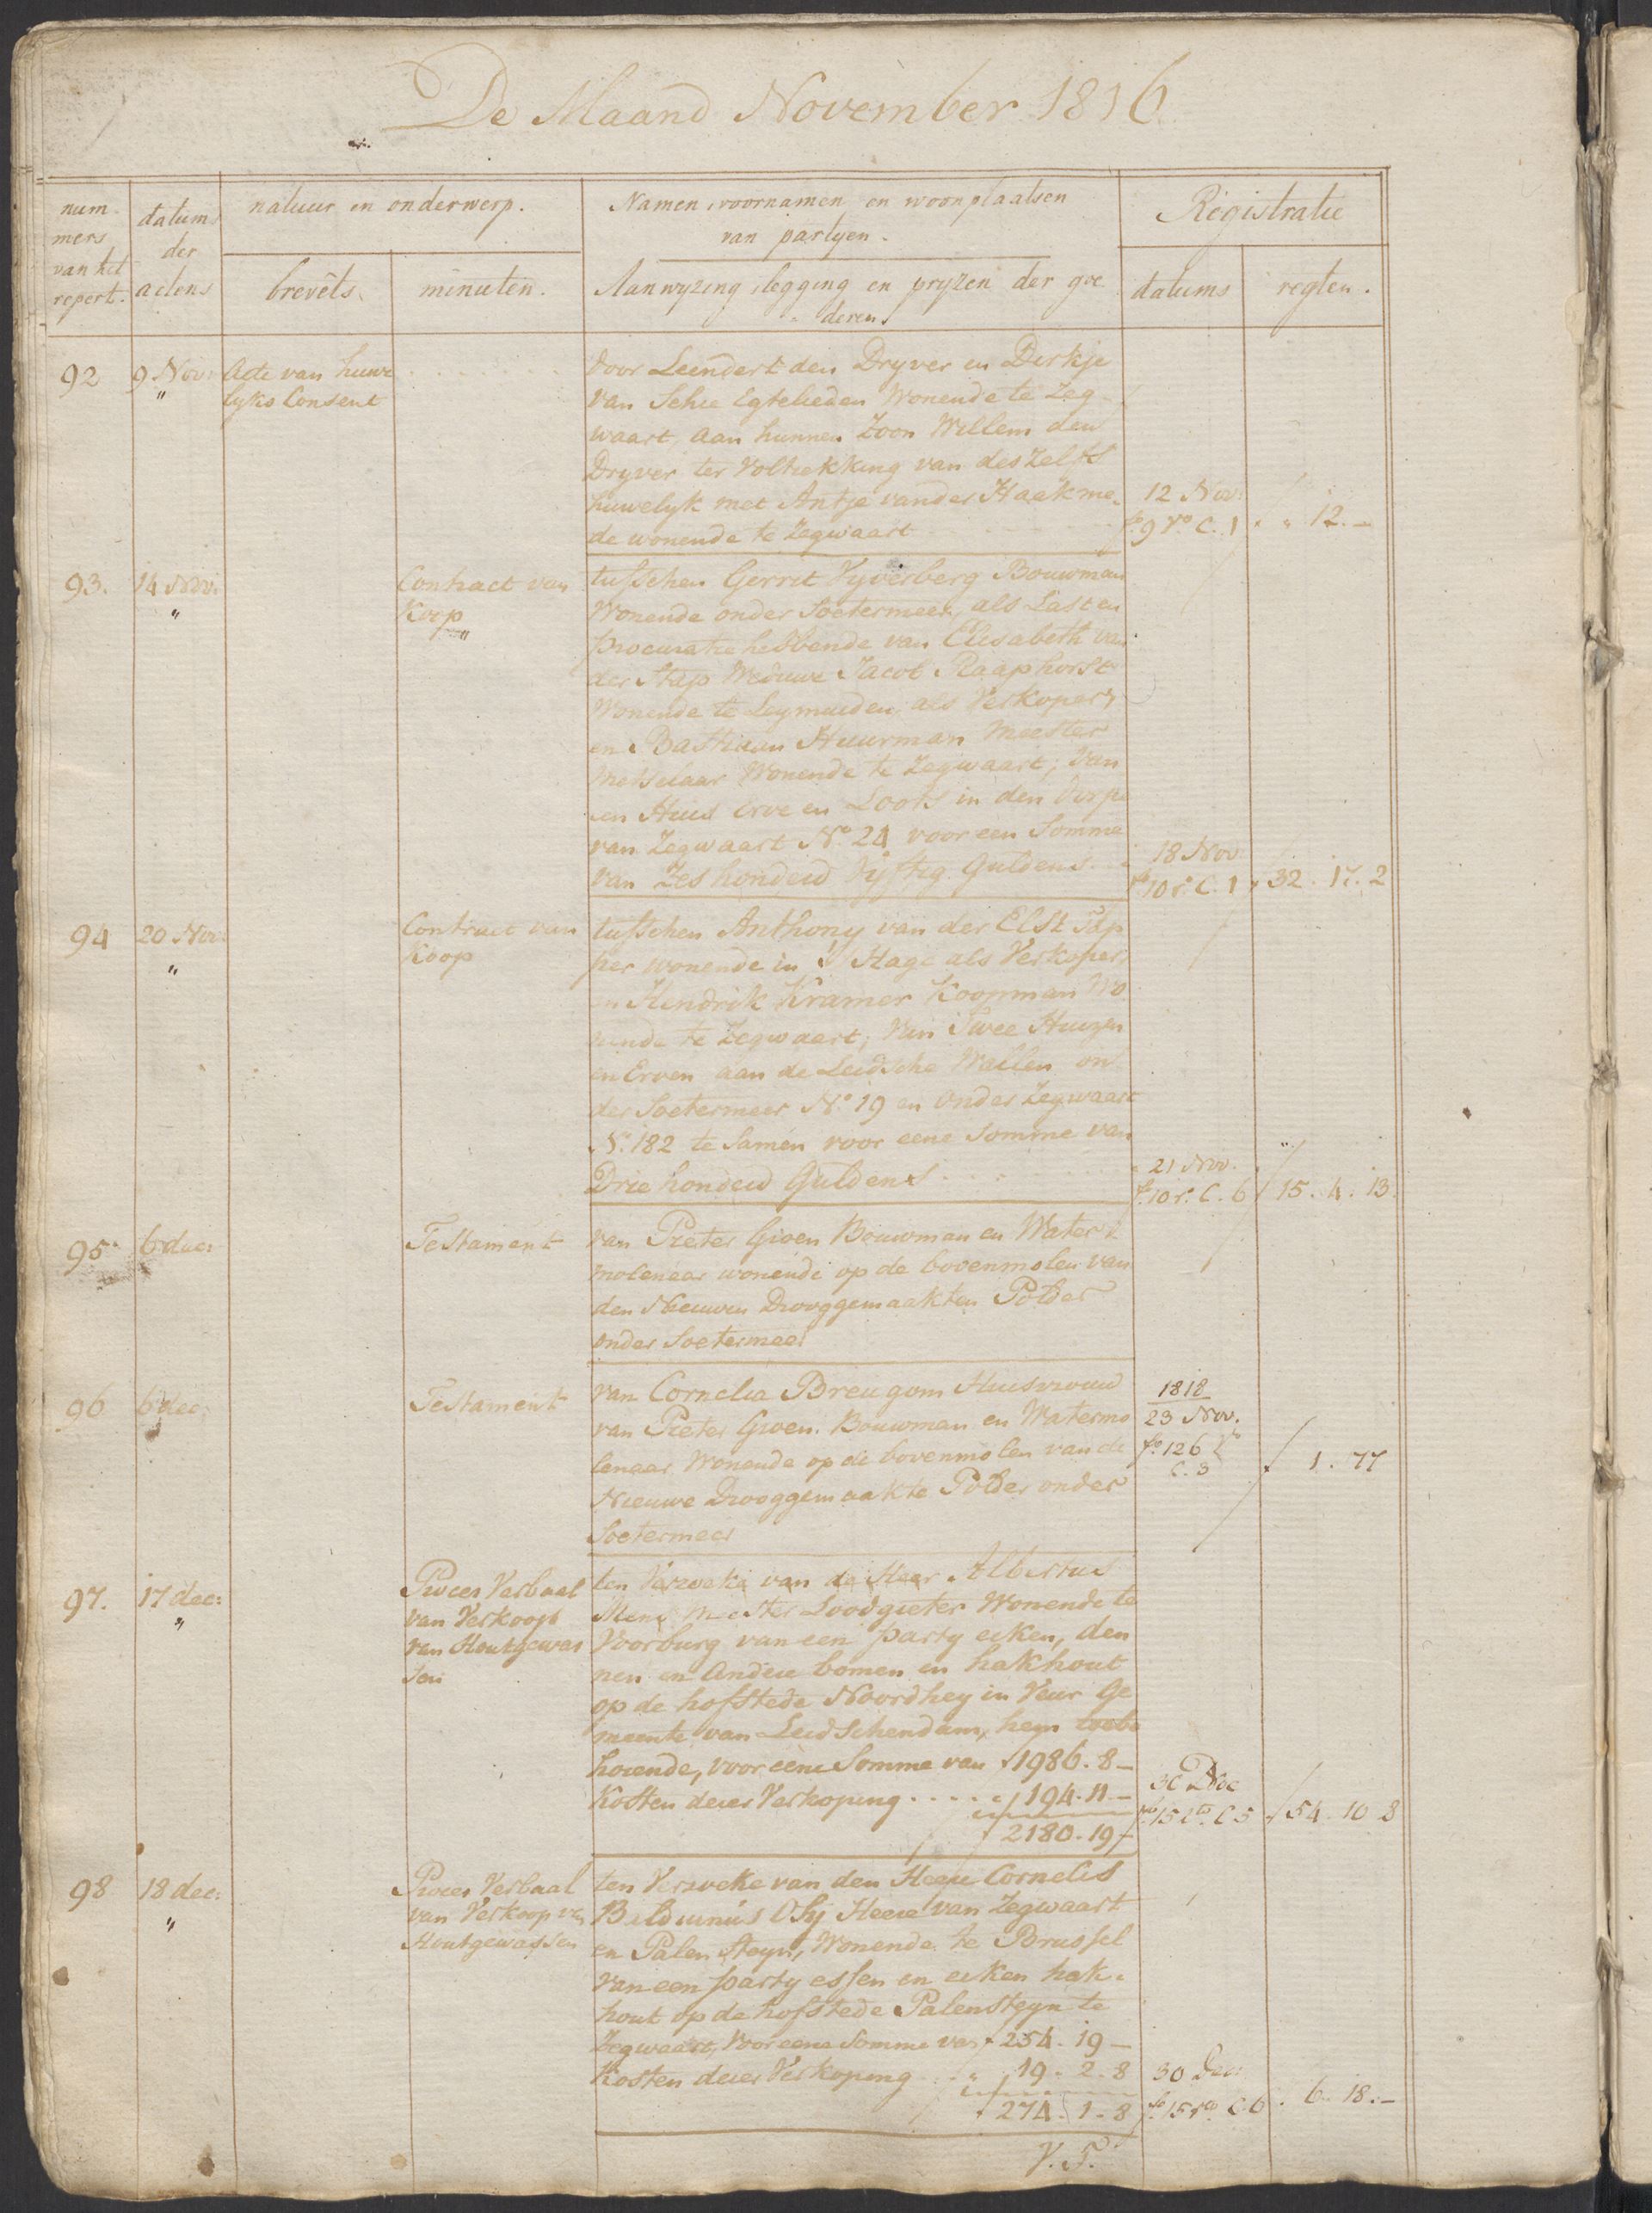 De Maand November 1816
num-
mers
van het
repert.
datums
der
actens
natuur en onderwerp.
brevêts
minuten.
Namen, voornamen en woonplaatsen
van partyen.
Aanwyzing, legging en pryzen der goe
deren
Registratie
datums
regten.
92
9 Nov:
"
Acte van huwe
lyks Consent
door Leendert den Dryver en Dirkje
van Schie Egtelieden Wonende te Zeg-
waart, aan hunnen Zoon Willem den
Dryver ter Voltrekking van deszelfs
huwelyk met Antje vander Haak me-
de wonende te Zegwaart
12 Nov:
fo 9 Vo C. 1
" " 12.-
93.
14 Nov:
"
Contract van
Koop
"
tusschen Gerrit Vyverberg Bouwman
Wonende onder Soetermeer, als Last en
procuratie hebbende van Elisabeth van
der Stap Weduwe Jacob Raaphorst
Wonende te Leymuiden als Verkoper,
en Bastiaan Huurman Meester
Metselaar Wonende te Zegwaart; Van
een Huis erve en Loots in den dorpe
van Zegwaart No. 24 voor een Somma
van Zes honderd Vyftig Guldens
18 Nov
fo 10 ro. C. 1
32. 17. 2
94
20 Nov:
"
Contract van
Koop
tusschen Anthony van der Elst Tap
per wonende in 's Hage als Verkoper,
en Hendrik Kramer Koopman Wo
nende te Zegwaart; Van Twee Huizen
en Erven aan de Leidsche Wallen on
der Soetermeer No. 19 en onder Zegwaart
No. 182 te Samen voor eene Somme van
Drie honderd Guldens
21 Nov.
fo. 10 ro. C. 6
15. 4. 13.
95.
6 dec:
Testament
van Pieter Groen Bouwman en Water
molenaar wonende op de bovenmolen van
den Nieuwen Drooggemaakten Polder
onder Soetermeer
96
6 dec:
Testament
van Cornelia Breugom Huisvrouw
van Pieter Groen. Bouwman en Watermo
lenaar Wonende op de bovenmolen van de
Nieuwe Drooggemaakte Polder onder
Soetermeer
1818
23 Nov.
fo. 126 Vo
C. 3
1. 77
97.
17 dec:
"
Proces Verbaal
van Verkoop
van Houtgewas
sen
ten Verzoeke van de Heer Albertus
Meester Loodgieter Wonende te
Voorburg van een party eiken, den
nen en andere bomen en hakhout
op de hofstede Noordhey in Veur Ge
meente van Leidschendam, hem toebe
horende, voor eene Somme van f 1986. 8 -
Kosten dezer Verkoping . . . . . 194. 11. -
f 2180. 19 -
30 Dec
fo 15 C 5
54. 10 8
98
18 dec:
"
Proces Verbaal
van Verkoop van
Houtgewassen
ten Verzoeke van den Heere Cornelis
Osy Heere van Zegwaart
en Palensteyn, Wonende te Brussel
Van een party essen en eiken hak-
hout op de hofstede Palensteyn te
Zegwaart, Voor eene Somme van f 254. 19 -
Kosten dezer Verkoping " 19. 2. 8
f 274. 1. 8
30 Dec:
fo. 15 ro C 6
6. 18. -
V. T.